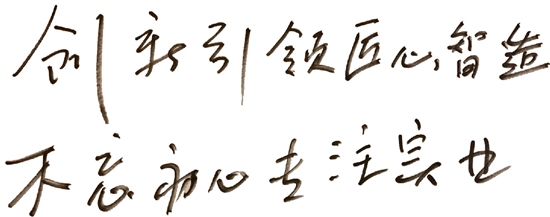 创新引领匠心智造
不忘初心专注实业